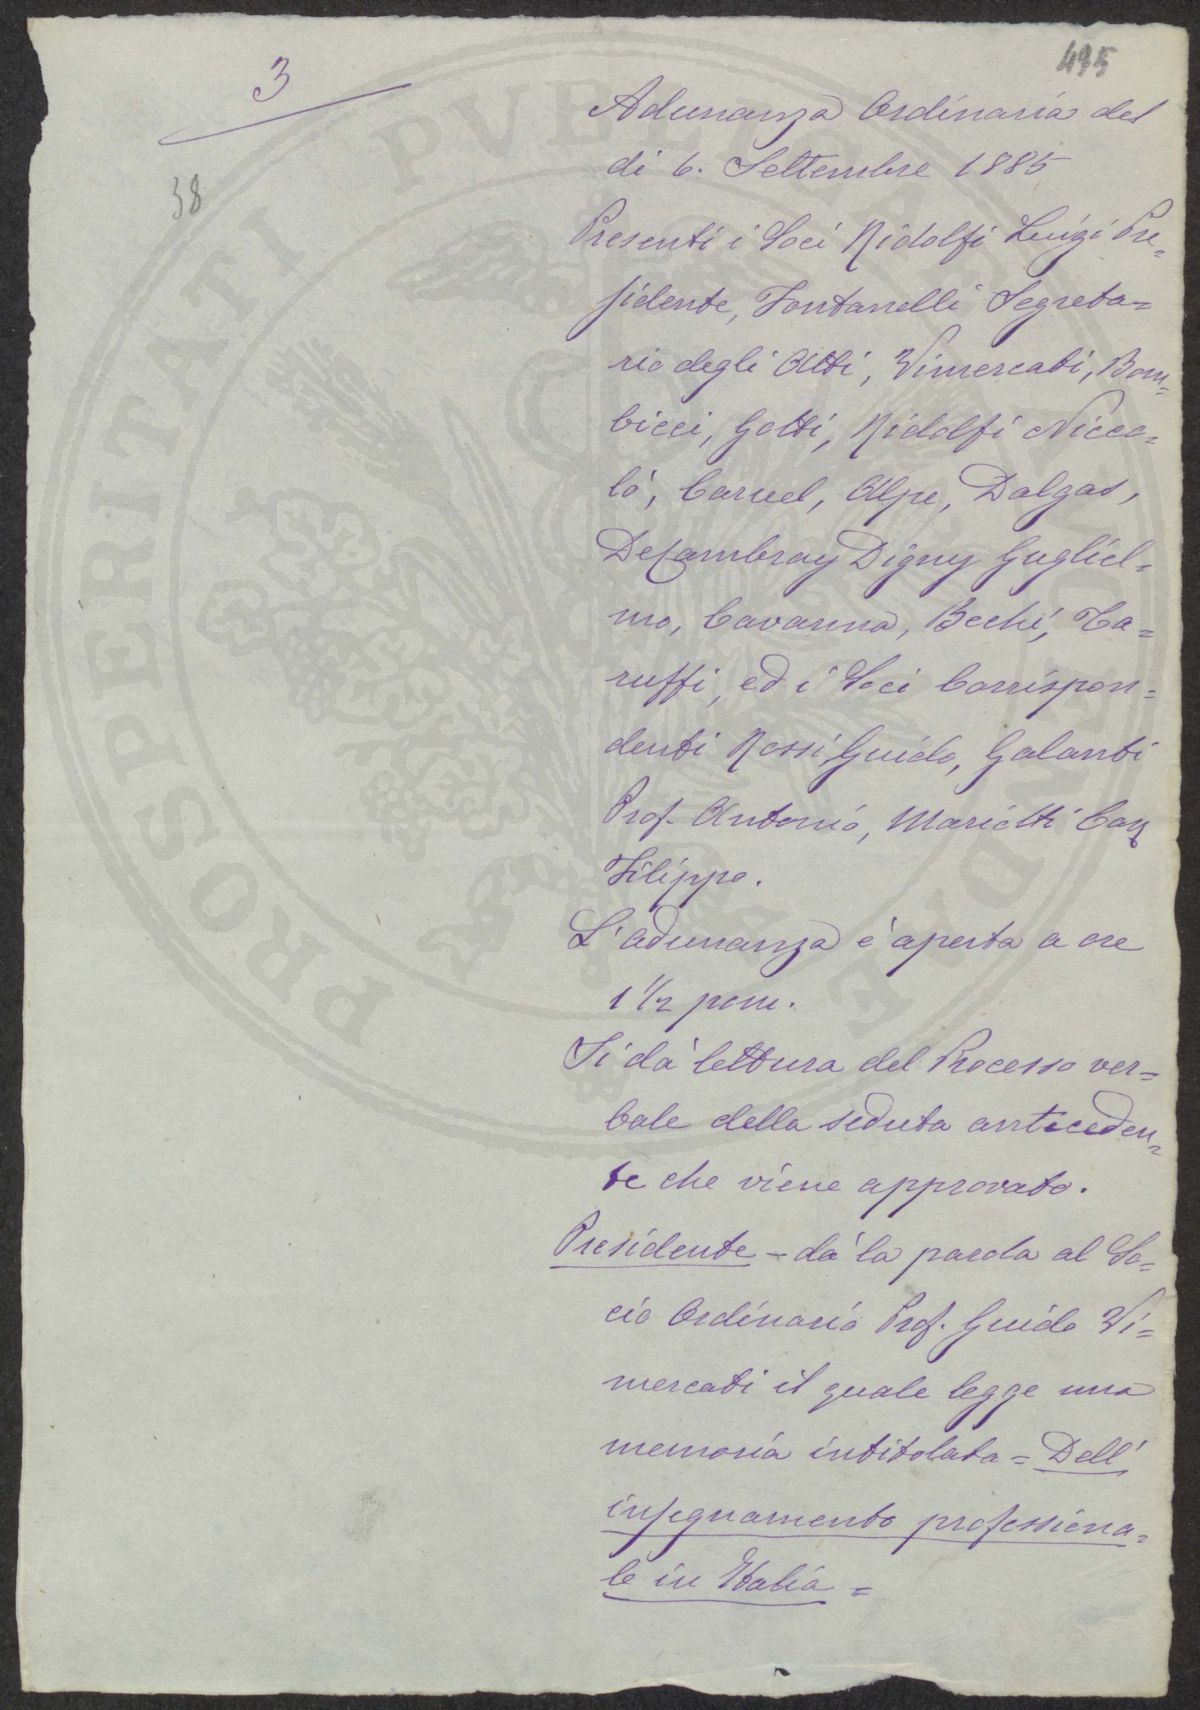 3
495
38
Adunanza Ordinaria del
dì 6. Settembre 1885
Presenti i Soci Ridolfi Luigi Pre=
sidente, Fontanelli Segreta=
rio degli Atti, Vimercati, Bom=
bicci, Gotti, Ridolfi Nicco=
lò, Caruel, Alpe, Dalgas,
DeCambray Digny Gugliel=
mo, Cavanna, Bechi, Ta=
ruffi, ed i Soci Corrispon=
denti Rossi Guido, Galanti
Prof. Antonio, Mariotti Cav
Filippo.
L'adunanza è aperta a ore
1 1/2 pom.
Si dà lettura del Processo ver=
bale della seduta anteceden=
te che viene approvato.
Presidente - dà la parola al So=
cio Ordinario Prof. Guido Vi=
mercati il quale legge una
memoria intitolata = Dell'
insegnamento professiona=
le in Italia =
PROSPERITATI PVBLICAE AVGENDAE